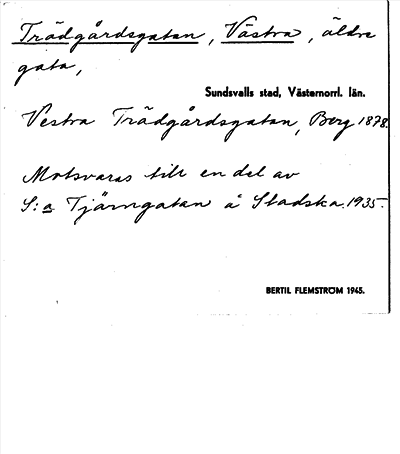 Trädgårdsgatan, Västra, äldre
gata,
Sundsvalls stad, Västernorrl. län.
Vestra Trädgårdsgatan, Berg 1878.
Motsvaras till en del av
S:a Tjärngatan å Stadska. 1935.
BERTIL FLEMSTRÖM 1945.